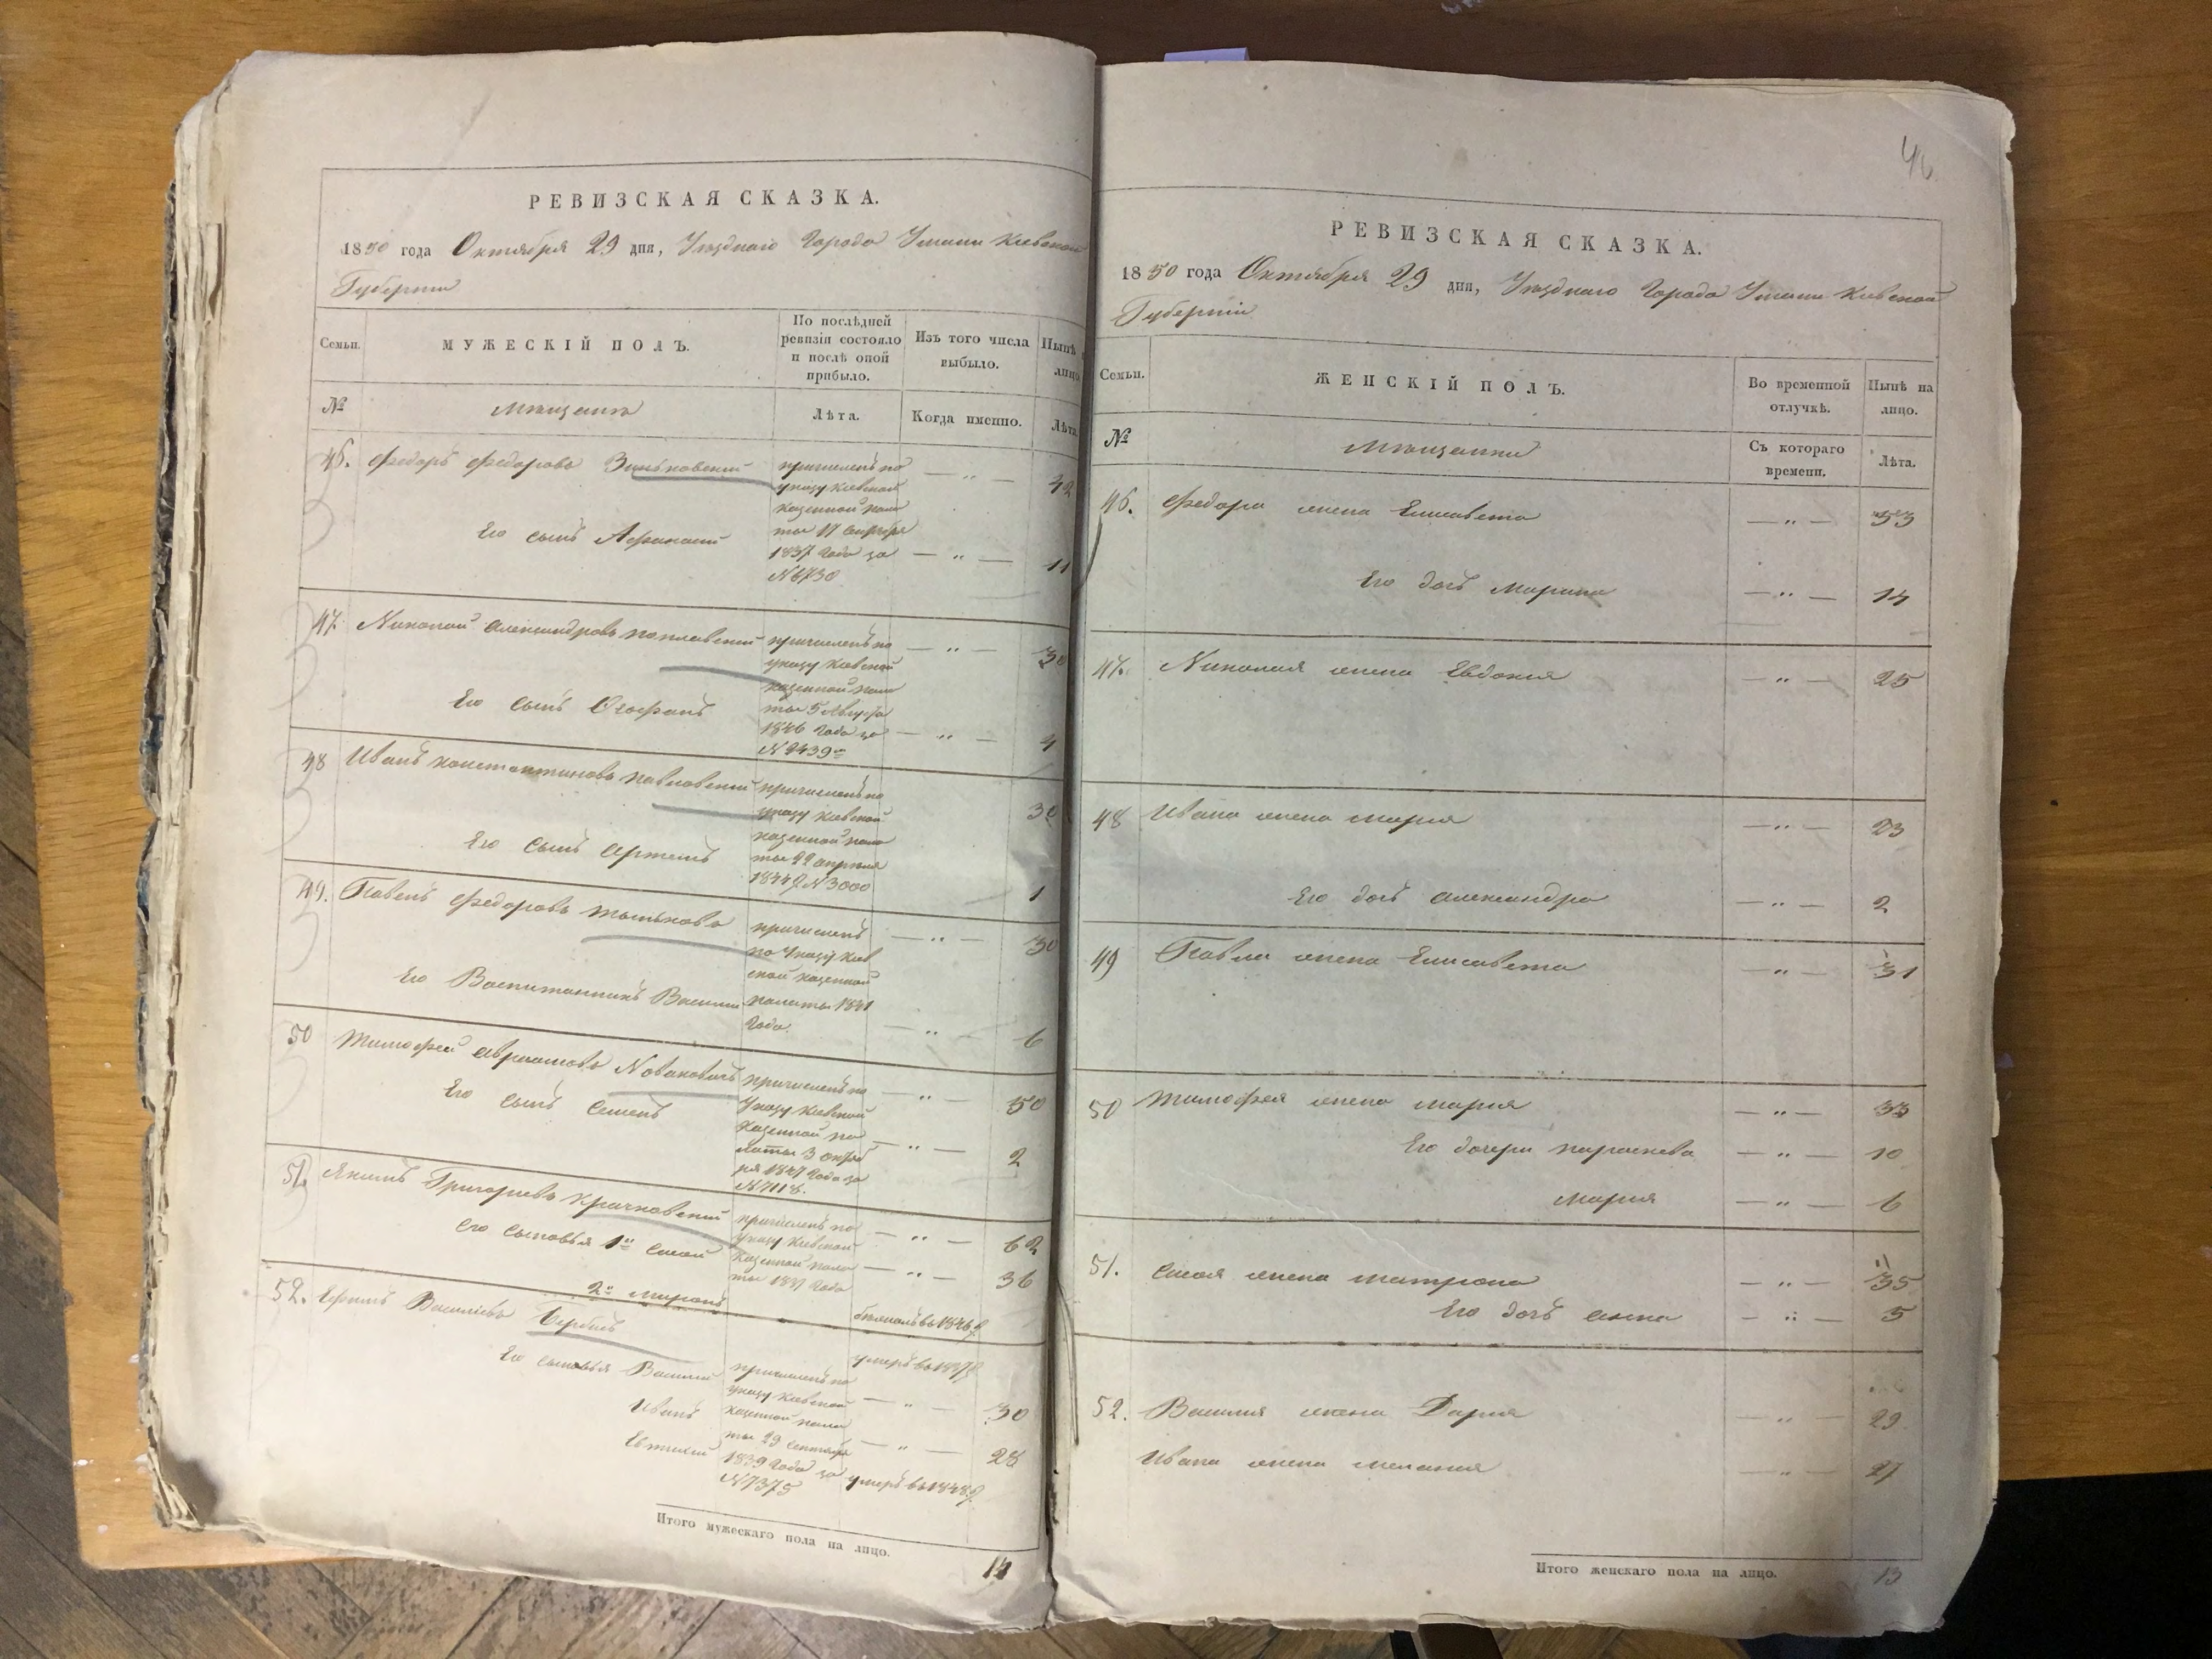 РЕВИЗСКАЯ СКАЗКА.
1850 года Октября 29 дня, Уезднаго Города Умани Киевской
Губернии
Семьи.
МУЖЕСКІЙ ПОЛЪ.
По послѣдней ревизіи состояло и послѣ оной прибыло.
Изъ того числа выбыло.
Нынѣ лицо
№
Мещанъ
Лѣта.
Когда именно.
Лѣта
46. Федоръ Федоровъ Зиньковский — „ — 42
причисленъ по
указу Киевской
казенной пала
ты 17
1837 Года за
№ 6730
Его сынъ Афанасий — „ — 11
47. Николай Александровъ Поплавский — „ — 30
причисленъ по
указу Киевской
казенной пала
ты 5 Августа
1846 Года за
№ 9439
Его сынъ Агафонъ — „ — 4
48 Иванъ Константиновъ Павловский 30
причисленъ по
указу Киевской
казенной пала
ты 22 апреля
1844 г. № 3000
Его сынъ Артемъ 1
49. Павелъ Федоровъ — „ — 30
причисленъ
по Указу Киев
ской казенной
палаты 1841
Года.
Его Воспитанникъ Василий — „ — 6
50 Тимофей Авраамовъ Новаковичъ — „ — 50
причисленъ по
Указу Киевской
Казенной па
латы 3
1847 Года за
№ 7118.
Его сынъ Семенъ — „ — 2
51. Якимъ Григорьевъ Крачковский — „ — 62
причисленъ по
указу Киевской
Казенной пала
ты 1837 Года
Его сыновья 1й Сисой — „ — 36
2й Миронъ въ 1846 г.
52. Ефимъ Василиевъ умеръ въ 1847 г.
причисленъ по
указу Киевской
казенной пала
ты 29 Сентября
1839 Года за
№ 7375
Его сыновья Василий — „ — 30
Иванъ — „ — 28
Евтихий умеръ въ 1848 г.
Итого мужескаго пола на лицо.
14
46
РЕВИЗСКАЯ СКАЗКА.
1850 года Октября 29 дня, Уезднаго Города Умани Киевской
Губернии
Семьи.
ЖЕНСКІЙ ПОЛЪ.
Во временной отлучкѣ.
Нынѣ на лицо.
№
Мещанки
Съ котораго времени.
Лѣта.
46. Федора жена Елисавета — „ — 53
Его дочь Марина — „ — 14
47. Николая жена Евдокия — „ — 25
48 Ивана жена Мария — „ — 23
Его дочь Александра — „ — 2
49 Павла жена Елисавета — „ — 31
50 Тимофея жена Мария — „ — 33
Его дочери Параскева — „ — 10
Мария — „ — 6
51. Сисоя жена Матрона — „ — 35
Его дочь Анна — „ — 5
52. Василия жена Дария — „ — 29
Ивана жена Мелания — „ — 27
Итого женскаго пола на лицо. 13